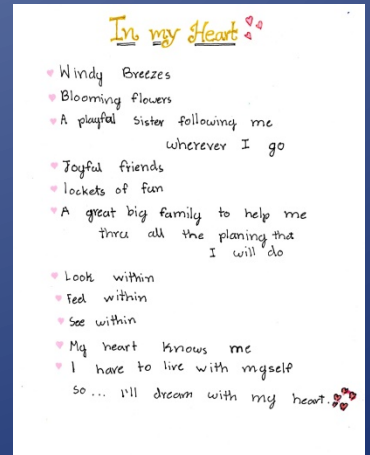 In my Heart
Windy Breezes
Blooming flowers
A playful Sister following me
wherever I go
Joyful friends
lockets of fun
A great big family to help me
thru all the planing that
I will do
Look within
Feel within
See within
My heart knows me
I have to live with myself
so... I'll dream with my heart.